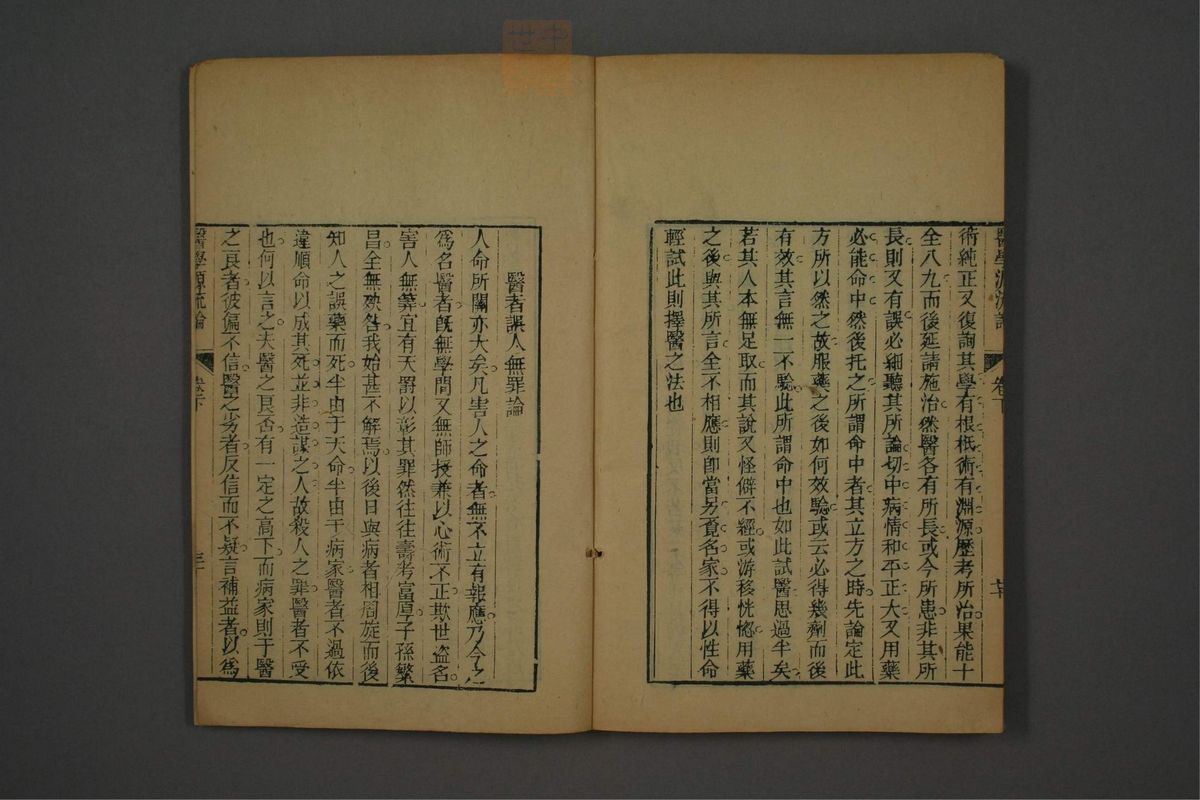 術純正又復詢其學有根柢術有淵源歷考所治果能十
全八九而後延請施治然醫各有所長或今所患非其所
長則又有誤必細聽其所論切中病情和平正大又用藥
必能命中然後托之所謂命中者其立方之時先論定此
方所以然之故服藥之後如何效驗或云必得幾劑而後
有效其言無一不驗此所謂命中也如此試醫思過半矣
若其人本無足取而其說又怪僻不經或游移恍惚用藥
之後與其所言全不相應則即當另覓名家不得以性命
輕試此則擇醫之法也
醫者誤人無罪論
人命所關亦大矣凡害人之命者無不立有報應乃今之
為名醫者既無學問又無師授兼以心術不正欺世盜名
害人無算宜有天罰以彰其罪然往往壽考富厚子孫繁
昌全無殃咎我始甚不解焉以後日與病者相周旋而後
知人之誤藥而死半由于天命半由于病家醫者不過依
違順命以成其死並非造謀之人故殺人之罪醫者不受
也何以言之夫醫之良否有一定之高下而病家則于醫
之良者彼偏不信醫之劣者反信而不疑言補益者以為
醫學源流論 卷下